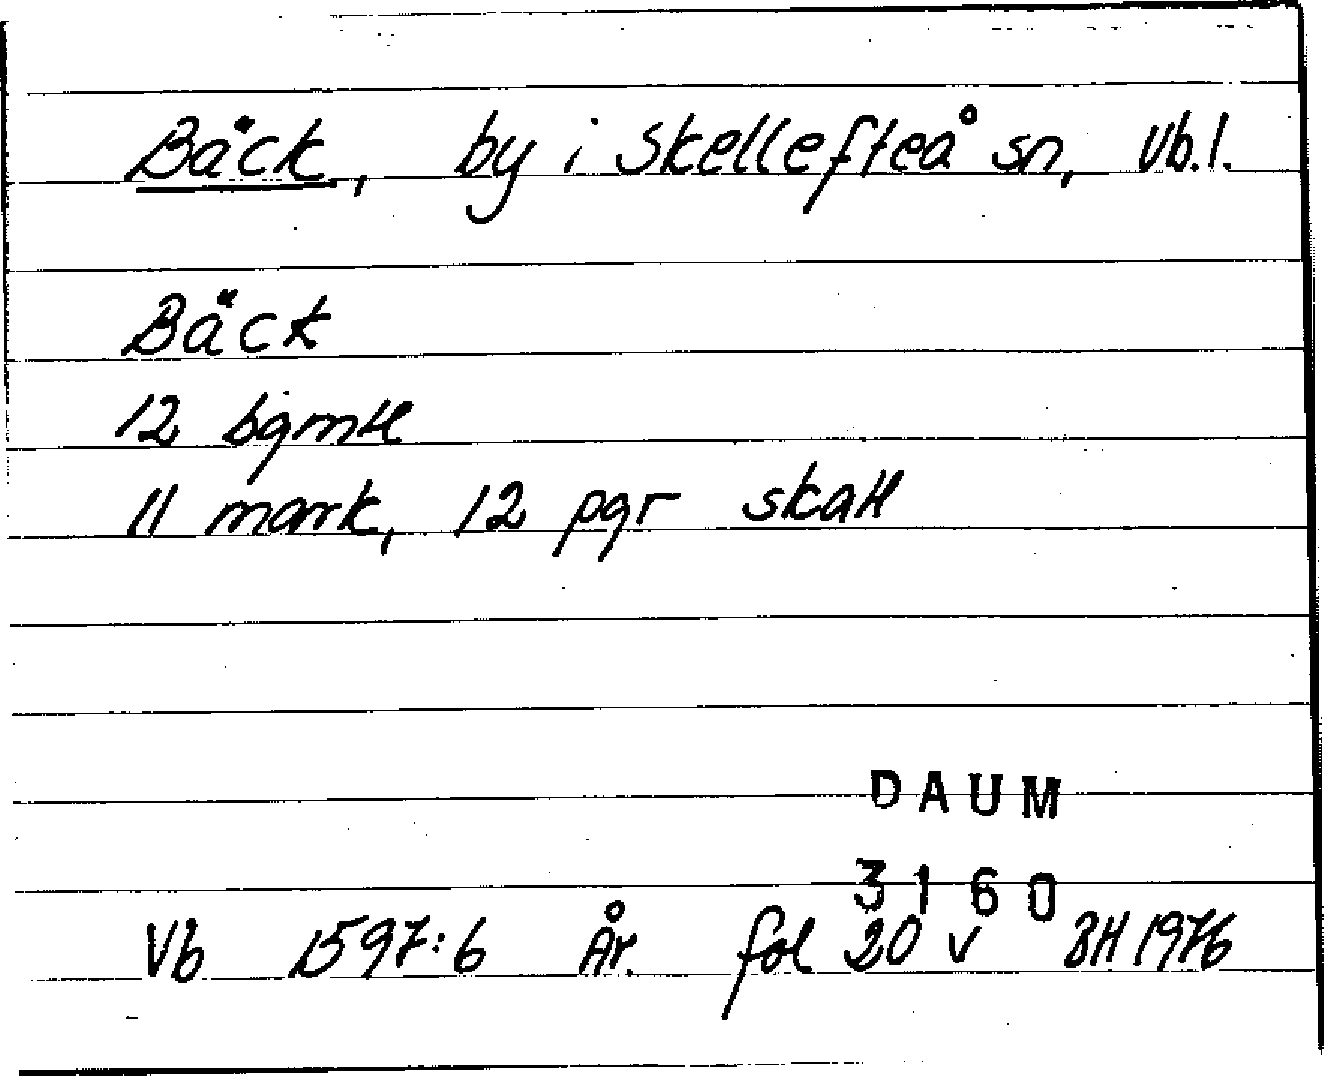 Bäck, by i Skellefteå sn, Vb.l.
Bäck
12 bgmtl
11 mark, 12 pgr skatt
DAUM
3160
Vb 1597:6 År. fol 20 v BH 1976